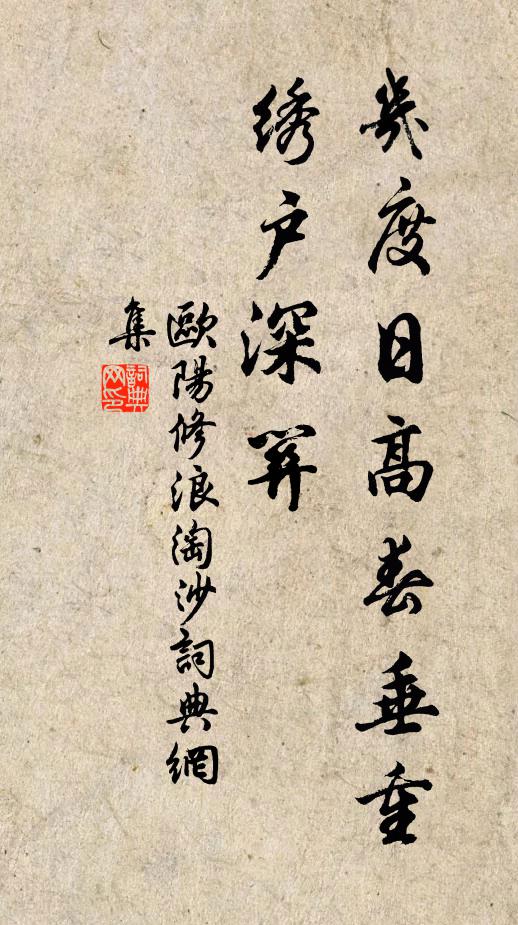 幾度日高春垂重
绣户深関
歐陽修浪淘沙詞典網
集
詞典网印